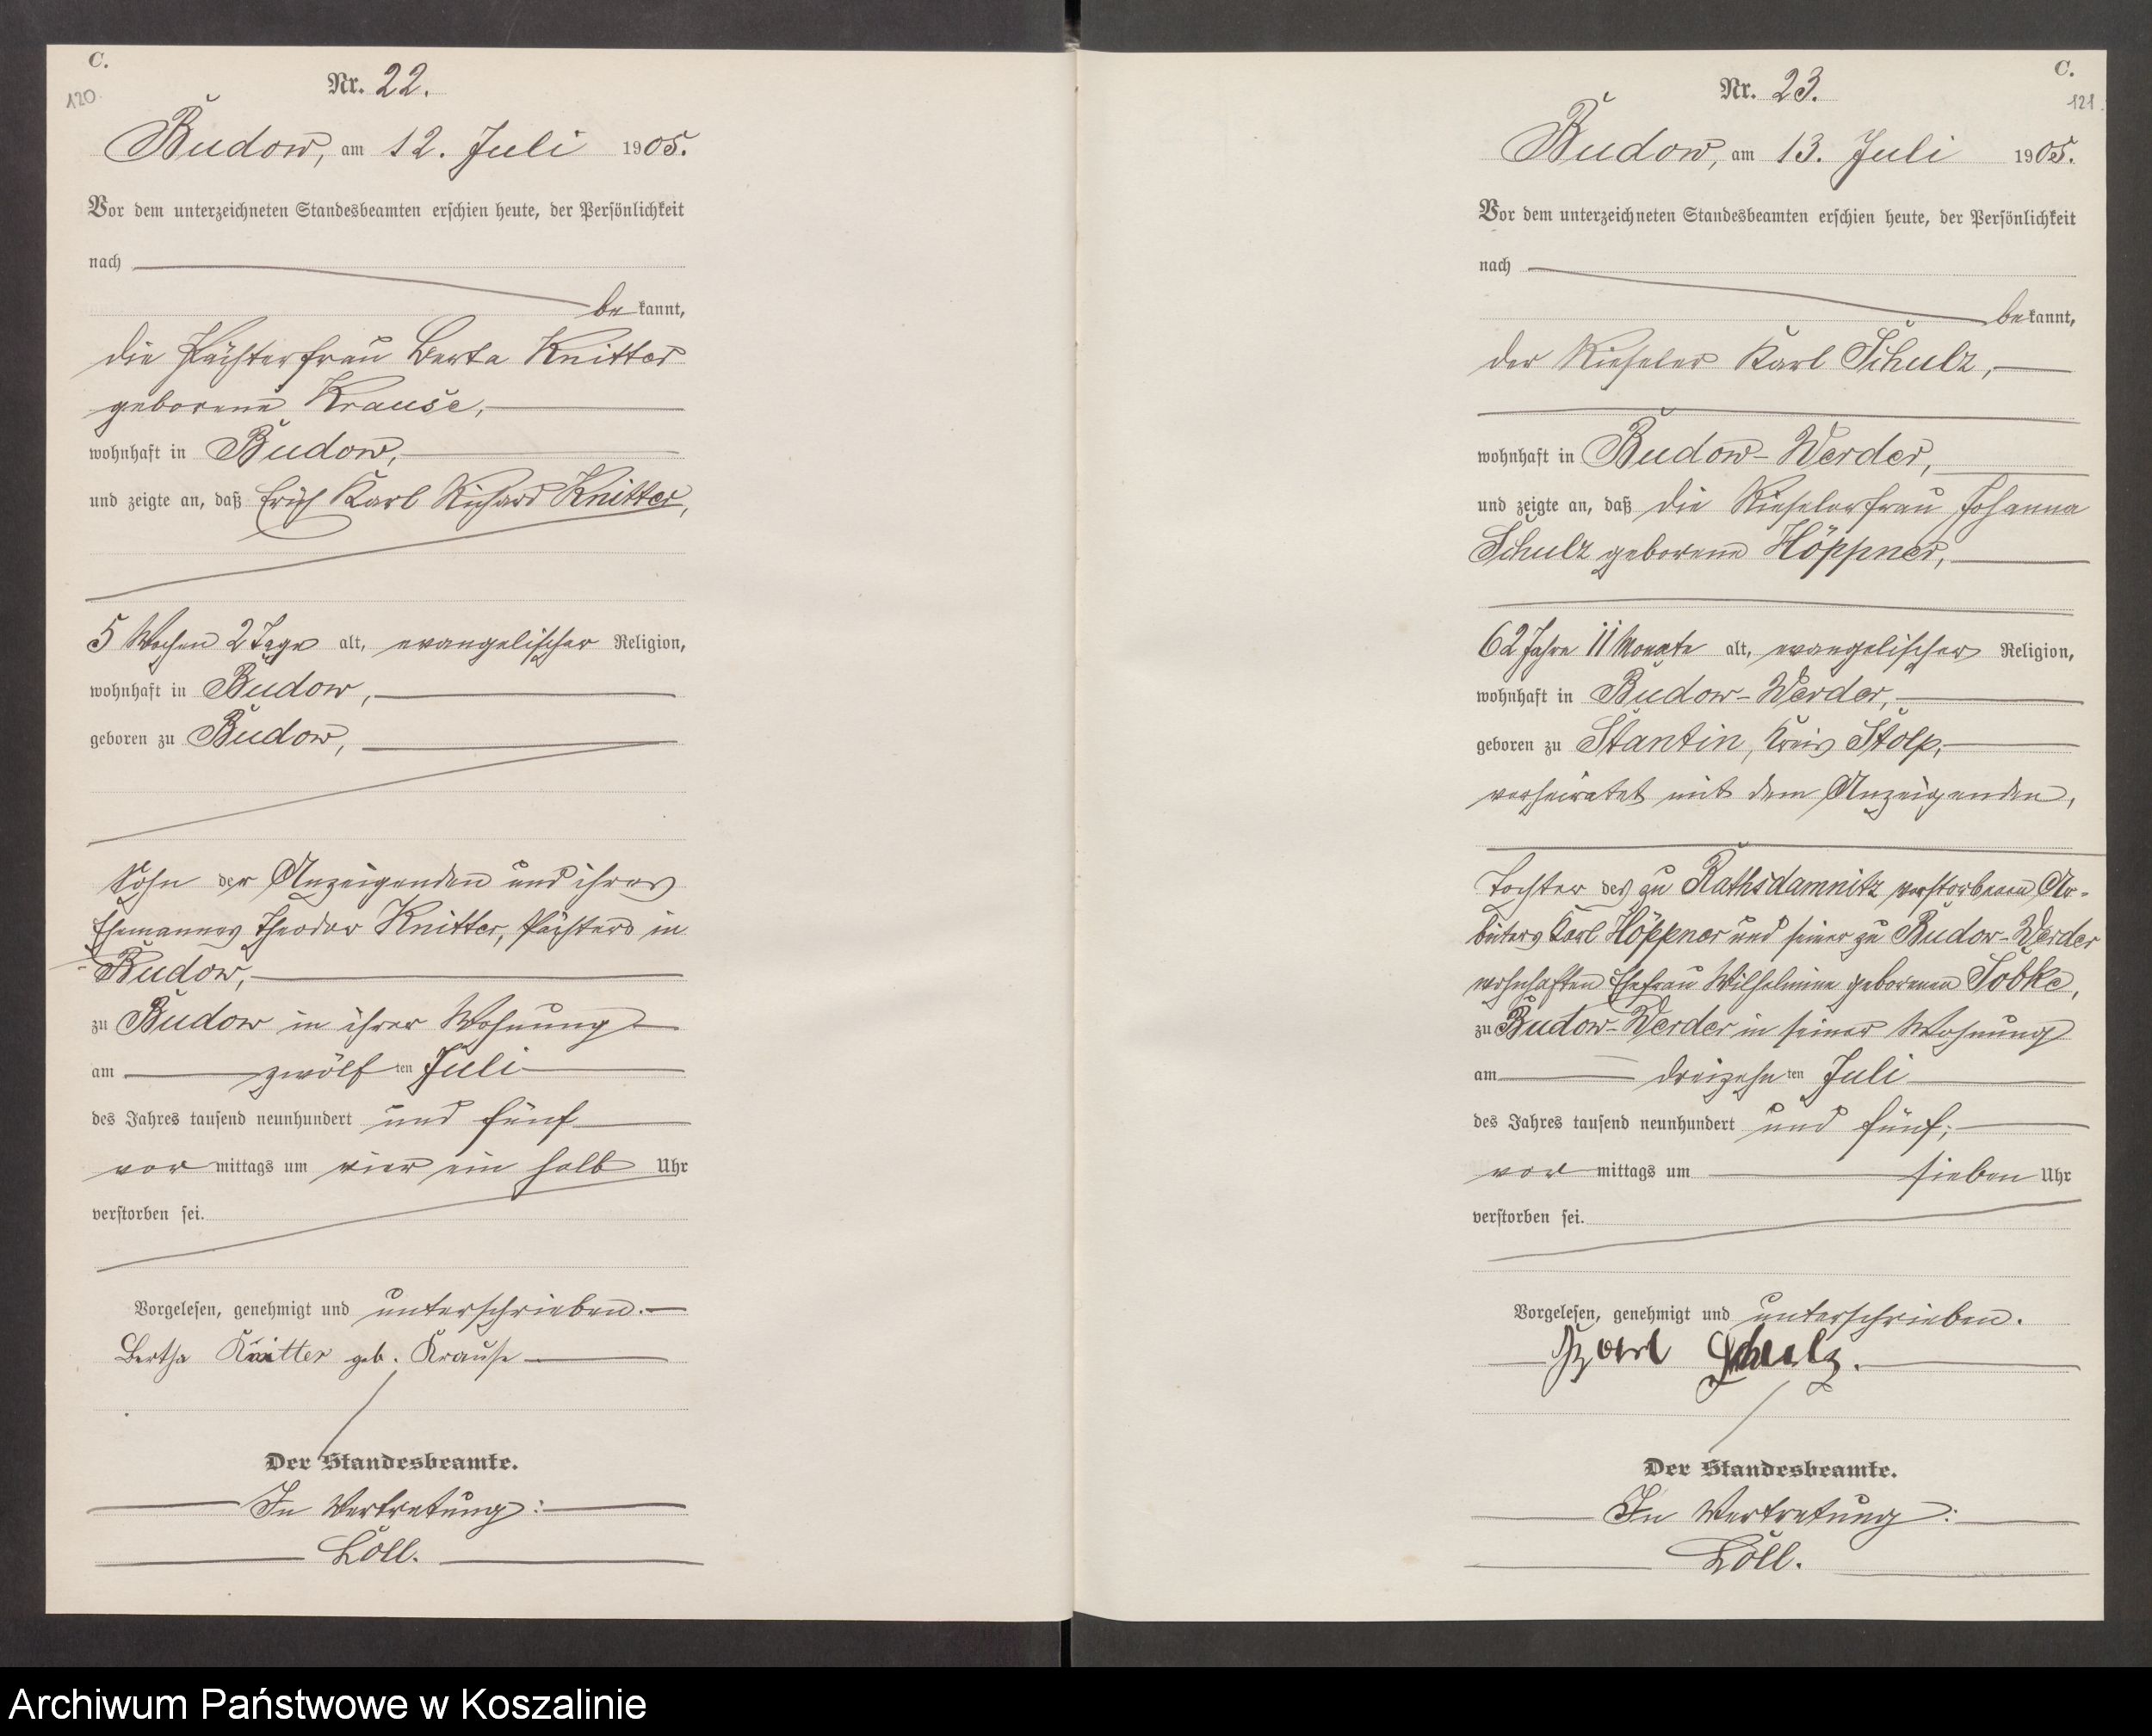 C.
120
Nr. 22.
Budow, am 12. Juli 1905.
Vor dem unterzeichneten Standesbeamten erschien heute, der Persönlichkeit
nach
bekannt,
die Pächterfrau Berta Knitter
geborene Krause,
wohnhaft in Budow,
und zeigte an, daß Erich Karl Richard Knitter,
5 Wochen 2 Tage alt, evangelischer Religion,
wohnhaft in Budow,
geboren zu Budow,
Sohn der Anzeigenden und ihres
Ehemannes Theodor Knitter, Pächters in
Budow,
zu Budow in ihrer Wohnung
am zwölften Juli
des Jahres tausend neunhundert und fünf
vormittags um vier ein halb Uhr
verstorben sei.
Vorgelesen, genehmigt und unterschrieben.
Bertha Knitter geb. Krause
Der Standesbeamte.
In Vertretung:
Löll.
C.
121
Nr. 23.
Budow, am 13. Juli 1905.
Vor dem unterzeichneten Standesbeamten erschien heute, der Persönlichkeit
nach
bekannt,
der Rieseler Karl Schulz,
wohnhaft in Budow-Werder,
und zeigte an, daß die Rieselerfrau Johanna
Schulz geborene Höppner,
62 Jahre 11 Monate alt, evangelischer Religion,
wohnhaft in Budow-Werder,
geboren zu Stantin, Kreis Stolp,
verheiratet mit dem Anzeigenden,
Tochter des zu Rathsdamnitz verstorbenen Ar-
beiters Karl Höppner und seiner zu Budow-Werder
wohnhaften Ehefrau Wilhelmine geborenen
zu Budow-Werder in seiner Wohnung
am dreizehnten Juli
des Jahres tausend neunhundert und fünf,
vormittags um sieben Uhr
verstorben sei.
Vorgelesen, genehmigt und unterschrieben.
Karl Schulz.
Der Standesbeamte.
In Vertretung:
Löll.
Archiwum Państwowe w Koszalinie